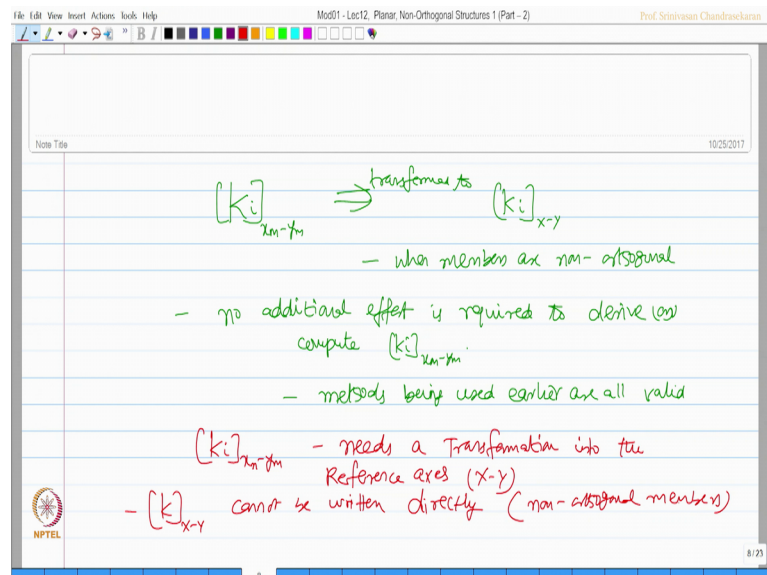 File Edit View Insert Actions Tools Help
Mod01 - Lec12, Planar, Non-Orthogonal Structures 1 (Part – 2)
Prof. Srinivasan Chandrasekaran
B I
Note Title
10/25/2017
[Ki]xm-ym ⇒ transformed to [Ki]x-y
- when members are non-orthogonal
- no additional effort is required to derive (or)
compute [Ki]xm-ym.
- methods being used earlier are all valid
[Ki]xm-ym - needs a Transformation into the
Reference axes (x-y)
- [K]x-y cannot be written directly (non-orthogonal members)
NPTEL
8/23